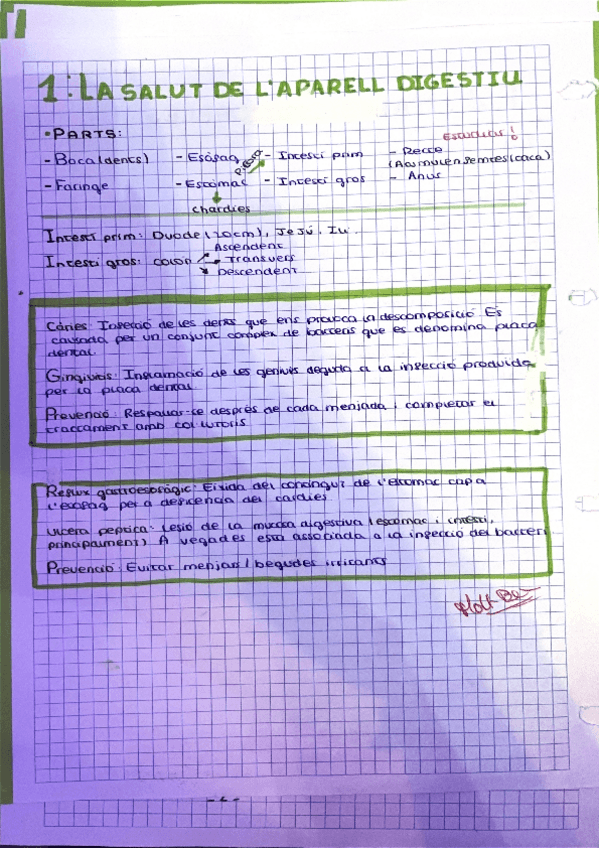 1: LA SALUT DE L'APARELL DIGESTIU
• PARTS:
Estudiar!
- Boca (dents) - Esòfag - Intestí prim - Recte
- Faringe - Estómac - Intestí gros - Anus
Intestí prim: Duodé (20cm), Jejú, Ili
Ascendent
Intestí gros: colon Transvers
Descendent
Càries: Infecció de les dents que ens provoca la descomposició. És
causada per un conjunt complex de bacteris que es denomina placa
dental.
Gingivitis: Inflamació de les genives deguda a la infecció produïda
per la placa dental
Prevenció: Respallar-se després de cada menjada i completar el
tractament amb col·lutoris
Reflux gastroesofàgic: Eixida del contingut de l'estómac cap a
l'esòfag per a deficiència del càrdies
Úlcera peptica: Lesió de la mucosa digestiva (estómac i intestí,
principalment) A vegades està associada a la infecció del bacteri
Prevenció: Evitar menjars / begudes irritants
Molt Bé